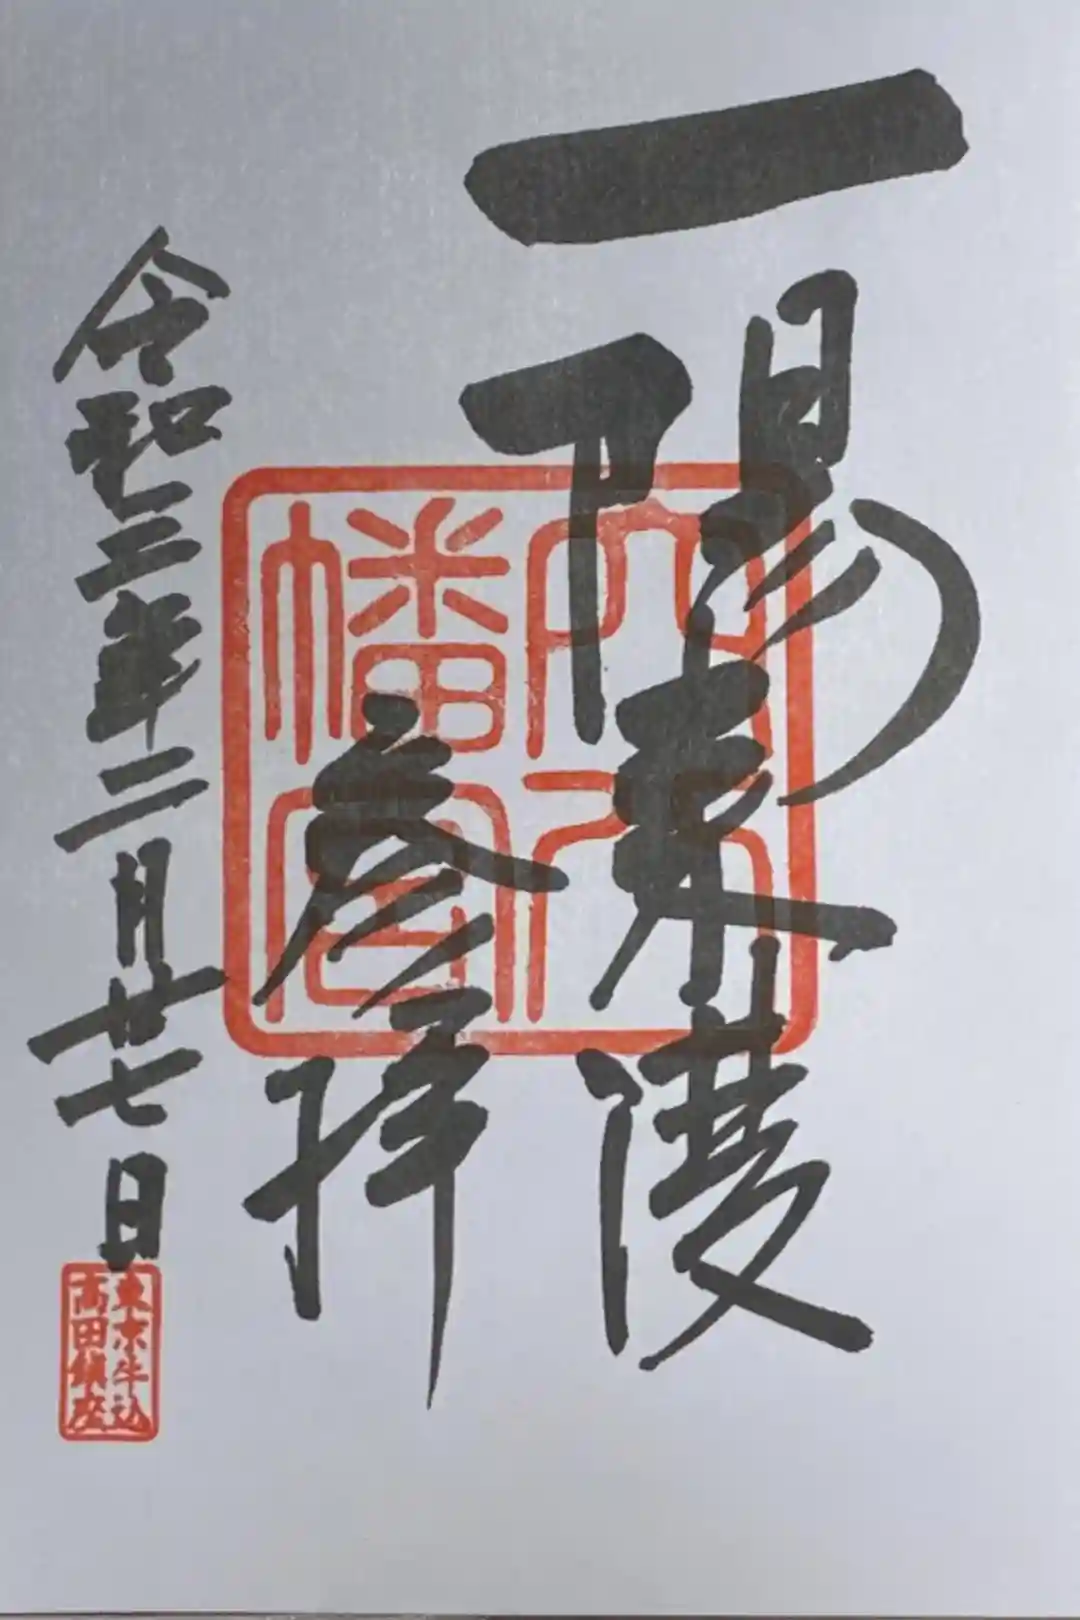 一陽来復
参拝
令和三年二月廿七日
穴八
幡宮
東京牛込
高田鎮座